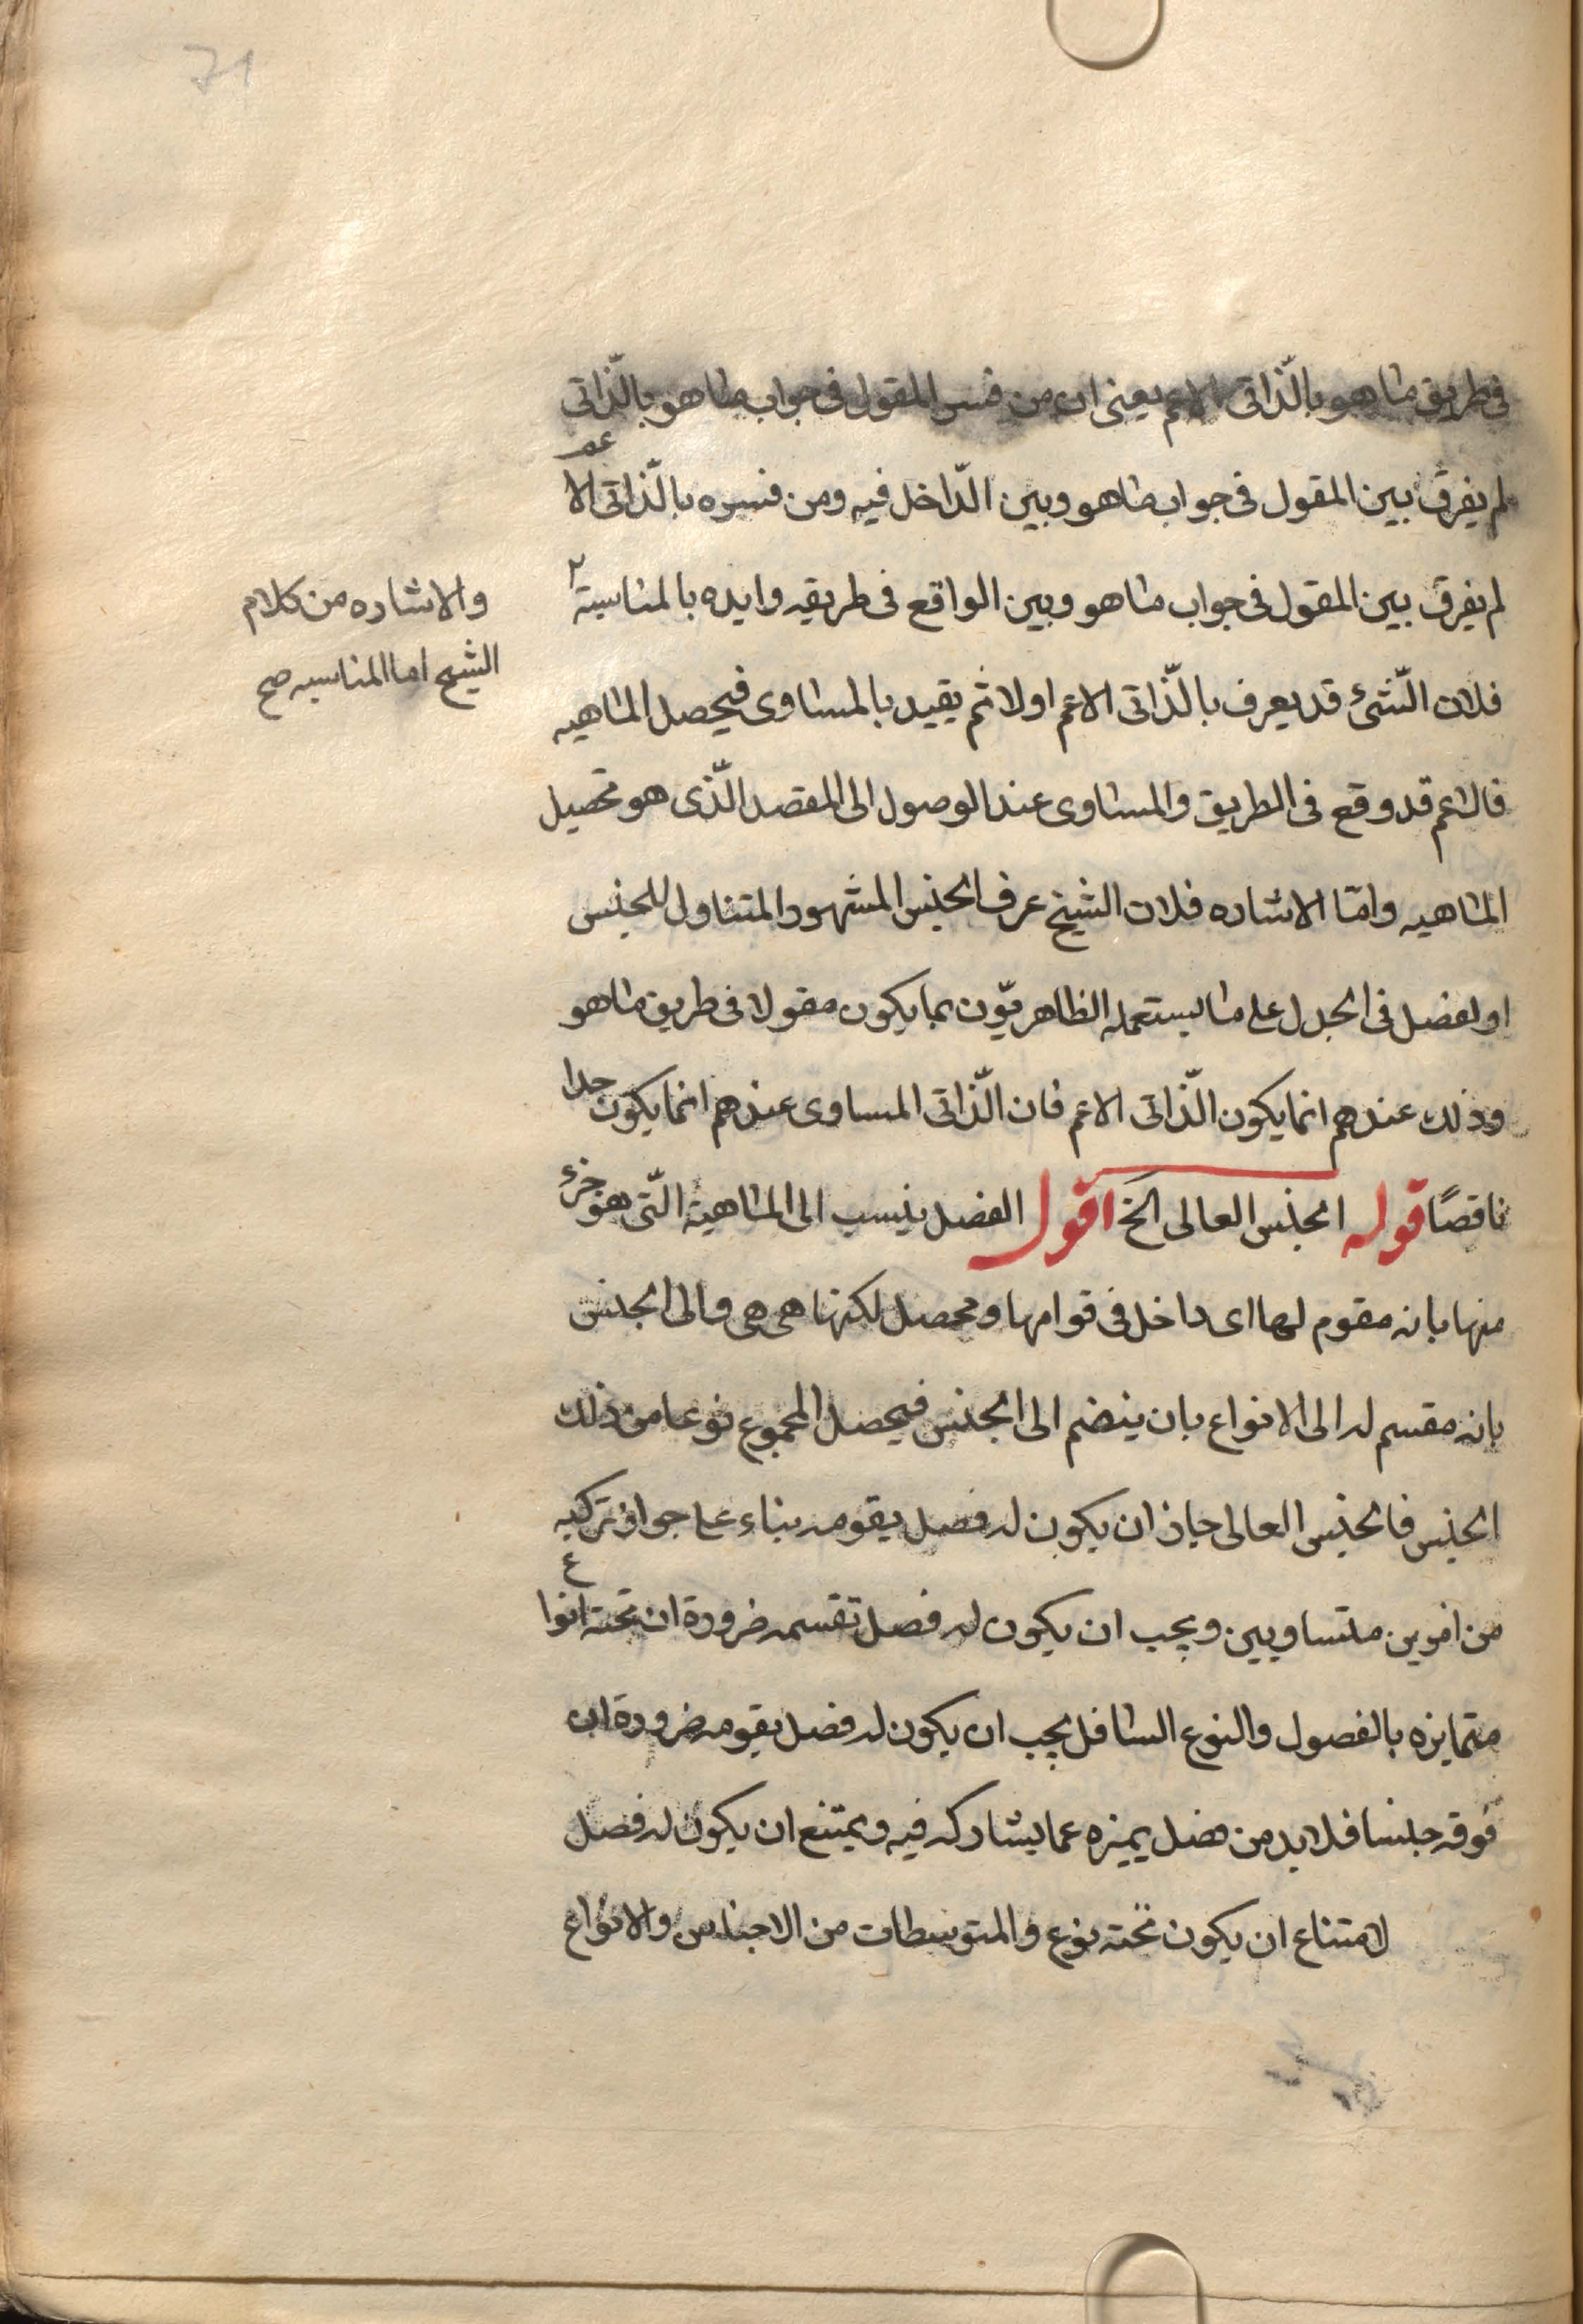 71
فى طريق ما هو بالذّاتى الاعم يعنى ان من فسر المقول فى جواب ما هو بالذّاتى
لم يفرق بين المقول فى جواب ما هو وبين الدّاخل فيه ومن فسره بالذّاتى الاعم
لم يفرق بين المقول فى جواب ما هو وبين الواقع فى طريقه وايده بالمناسبة ٢
والاشاره من كلام
الشيخ اما المناسبه صح
فلان الشّئ قد يعرف بالذّاتى الاعم اولا ثم يقيد بالمساوى فيحصل الماهيه
فالاعم قد وقع فى الطريق والمساوى عند الوصول الى المقصد الّذى هو تحصيل
الماهيه وامّا الاشاره فلان الشيخ عرف الجنس المشهور المتناول للجنس
او لفصل فى الجدل على ما يستعمله الظاهريّون بما يكون مقولا فى طريق ما هو
وذلك عندهم انما يكون الذّاتى الاعم فان الذّاتى المساوى عندهم انما يكون حدا
ناقصًا قوله الجنس العالى الخ اقول الفصل ينسب الى الماهية الّتى هو جزء
منها بانه مقوم لها اى داخل فى قوامها ومحصل لكنها هى هى والى الجنس
بانه مقسم له الى الانواع بان ينضم الى الجنس فيحصل المجموع نوعا من ذلك
الجنس فالجنس العالى جاز ان يكون له فصل يقومه بناء على جواز تركبه
من امرين متساويين ويجب ان يكون له فصل تقسمه ضرورة ان تحته انواع
متمايزه بالفصول والنوع السافل يجب ان يكون له فصل يقومه ضرورة ان
فوقه جنسا فلا بد من فصل يميزه عما يشاركه فيه ويمتنع ان يكون له فصل
لامتناع ان يكون تحته نوع والمتوسطات من الاجناس والانواع